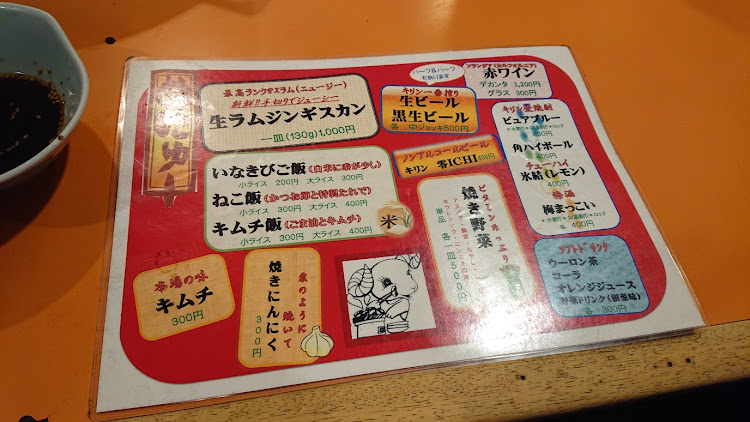 最高ランク®スラム(ニュージー)
新鮮!!手切りでジューシー
生ラムジンギスカン
一皿(130g)1,000円
ハーフ&ハーフ
キリン一番搾り
生ビール
黒生ビール
各 中ジョッキ500円
赤ワイン
デカンタ 1,200円
グラス 300円
ノンアルコールビール
キリン 零ICHI 400円
ピュアブルー
400円
角ハイボール
400円
チューハイ
氷結(レモン)
400円
梅まっこい
各 400円
いなきびご飯(白米に赤が少し)
小ライス 200円 大ライス 300円
ねこ飯(かつお節と特製たれで)
小ライス 300円 大ライス 400円
キムチ飯(ごま油とキムチ)
小ライス 300円 大ライス 400円
米
ビタミンたっぷり
焼き野菜
単品 各一皿500円
ソフトドリンク
ウーロン茶
コーラ
オレンジジュース
各 300円
本場の味
キムチ
300円
栗のように
焼いて
焼きにんにく
300円